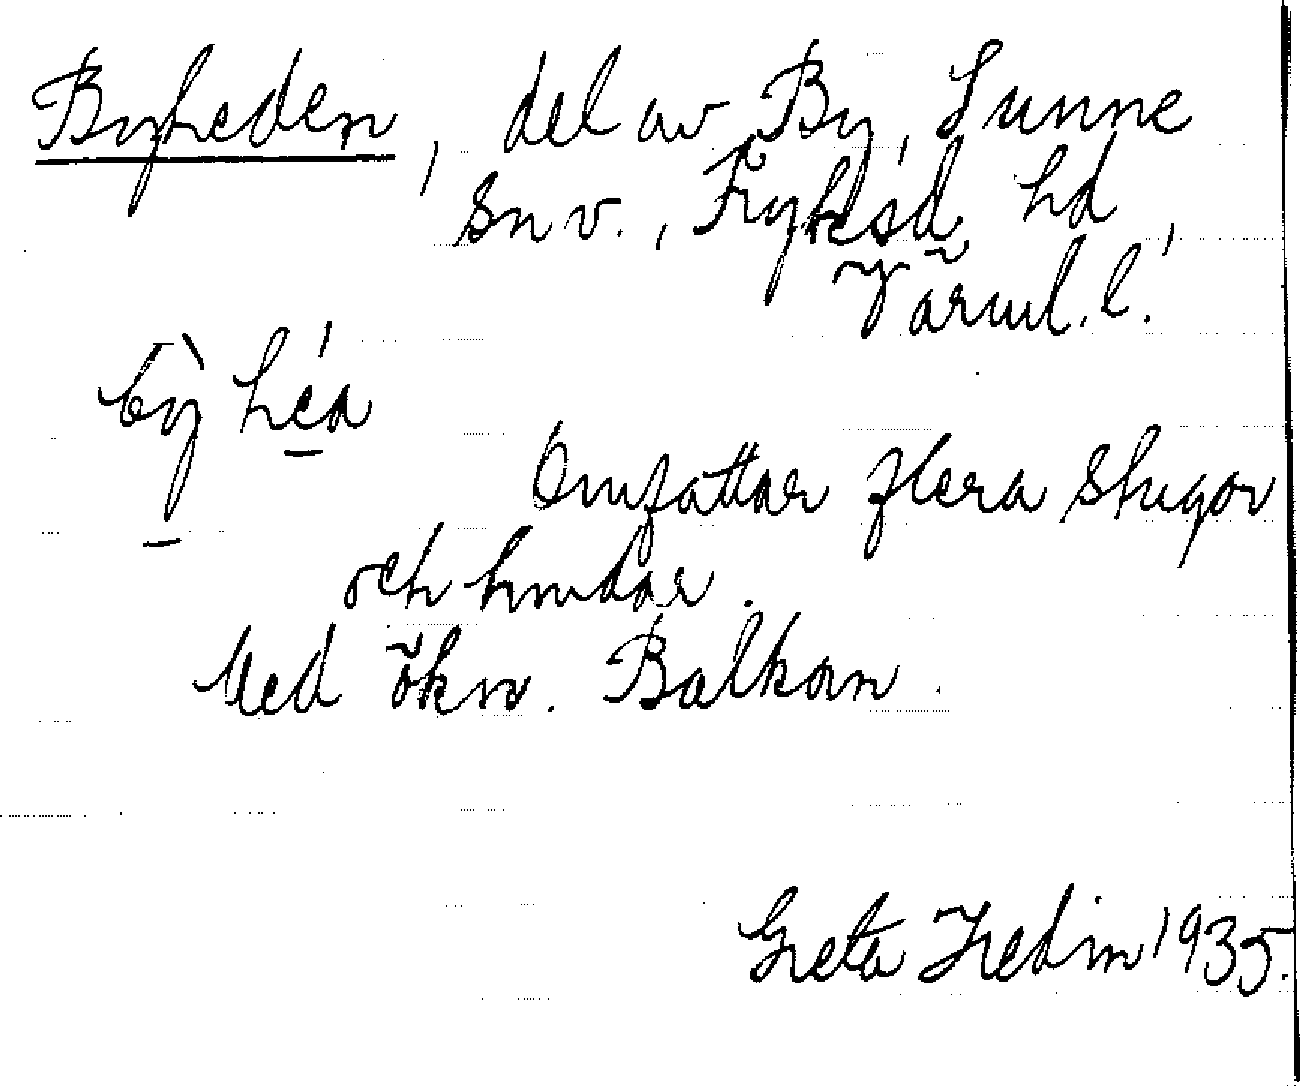 Byheden, del av By, Sunne
sn v., Fryksd. hd,
Värml. l.
bỳ héa
Omfattar flera stugor
och hmdar.
Ned ökn. Balkan.
Greta Hedin 1935.